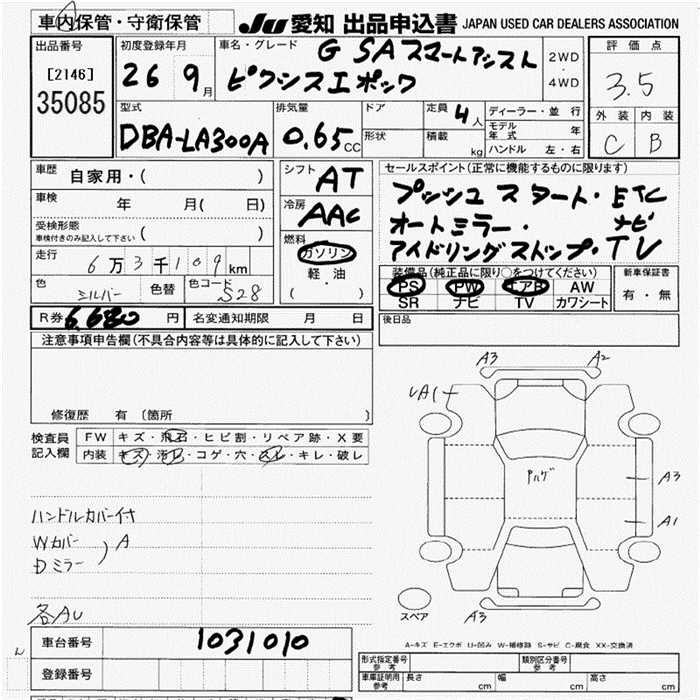 車内保管・守衛保管
JU 愛知 出品申込書 JAPAN USED CAR DEALERS ASSOCIATION
出品番号
[2146]
35085
初度登録年月
26 9月
車名・グレード
G SAスマートアシスト
ピクシスエポック
2WD
・
4WD
評価点
3.5
外装 内装
C B
型式
DBA-LA300A
排気量
0.65CC
ドア
形状
定員 4人
積載 kg
ディーラー・並行
モデル年式 年
ハンドル 左・右
車歴
自家用・( )
車検
年 月( 日)
受検形態
車検付きのみ記入して下さい
( )
走行
6万3千109km
色
シルバー
色替
色コード
S28
シフト
AT
冷房
AAC
燃料
ガソリン
軽・油
( )
セールスポイント(正常に機能するものに限ります)
プッシュスタート・ETC
オートミラー・ナビ
アイドリングストップ・TV
装備品(純正品に限り○をつけてください)
PS PW エアB AW
SR ナビ TV カワシート
新車保証書
有・無
R券 6,680円
名変通知期限 月 日
後日品
注意事項申告欄(不具合内容等は具体的に記入して下さい)
修復歴 有 〔箇所 〕
検査員記入欄
FW キズ・飛石・ヒビ割・リペア跡・X要
内装 キズ・汚れ・コゲ・穴・スレ・キレ・破レ
ハンドルカバー付
Wカバー
Dミラー
A
各AU
A3 A2
A1
A3
A1
A3
スペア
A-キズ E-エクボ U-凹み W-補修跡 S-サビ C-腐食 XX-交換済
車台番号 1031010
登録番号
形式指定番号
参考
類別区分番号
参考
車庫証明用
参考
長さ cm 幅 cm 高さ cm